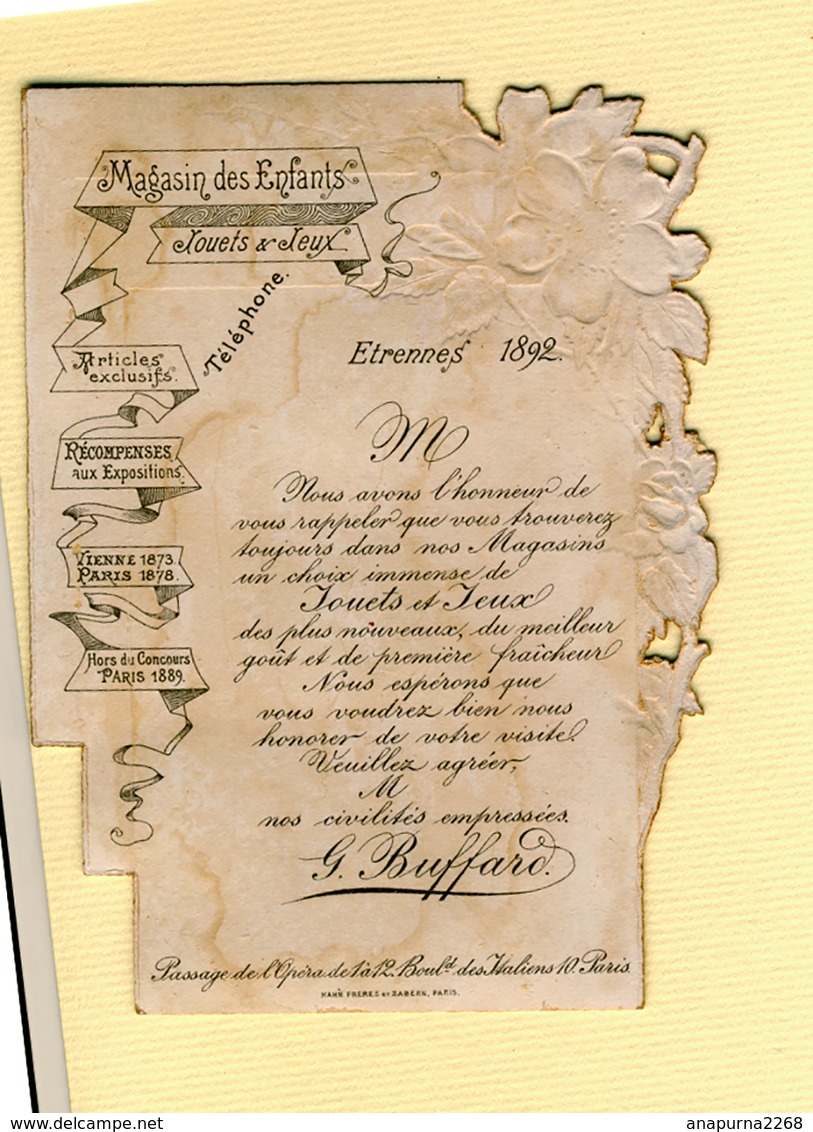 Magasin des Enfants
Jouets & Jeux
Téléphone.
Articles
exclusifs.
RÉCOMPENSES
aux Expositions.
VIENNE 1873
PARIS 1878.
Hors du Concours
PARIS 1889.
Etrennes 1892.
M
Nous avons l'honneur de
vous rappeler que vous trouverez
toujours dans nos Magasins
un choix immense de
Jouets et Jeux
des plus nouveaux, du meilleur
goût et de première fraîcheur
Nous espérons que
vous voudrez bien nous
honorer de votre visite.
Veuillez agréer,
M
nos civilités empressées.
G. Buffard.
Passage de l'Opéra de 1 à 12. Boul.d des Italiens 10. Paris
HAHN FRERES ET SABERN, PARIS.
delcampe.net
anapurna2268